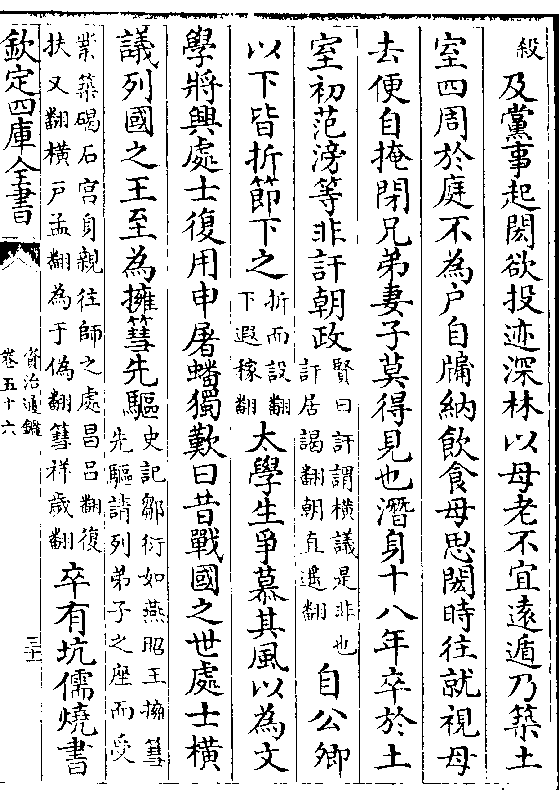 殺
及黨事起閎欲投迹深林以母老不宜遠遁乃築土
室四周於庭不為户自牖納飲食母思閎時往就視母
去便自掩閉兄弟妻子莫得見也潛身十八年卒於土
室初范滂等非訐朝政
賢曰訐謂横議是非也
訐居謁翻朝直遥翻
自公卿
以下皆折節下之
折而設翻
下遐稼翻
太學生爭慕其風以為文
學將興處士復用申屠蟠獨歎曰昔戰國之世處士横
議列國之王至為擁篲先驅
史記鄒衍如燕昭王擁篲
先驅請列弟子之座而受
業築碣石宫身親往師之處昌吕翻復
扶又翻横户孟翻為于偽翻篲祥歲翻
卒有坑儒燒書
欽定四庫全書
資治通鑑
卷五十六